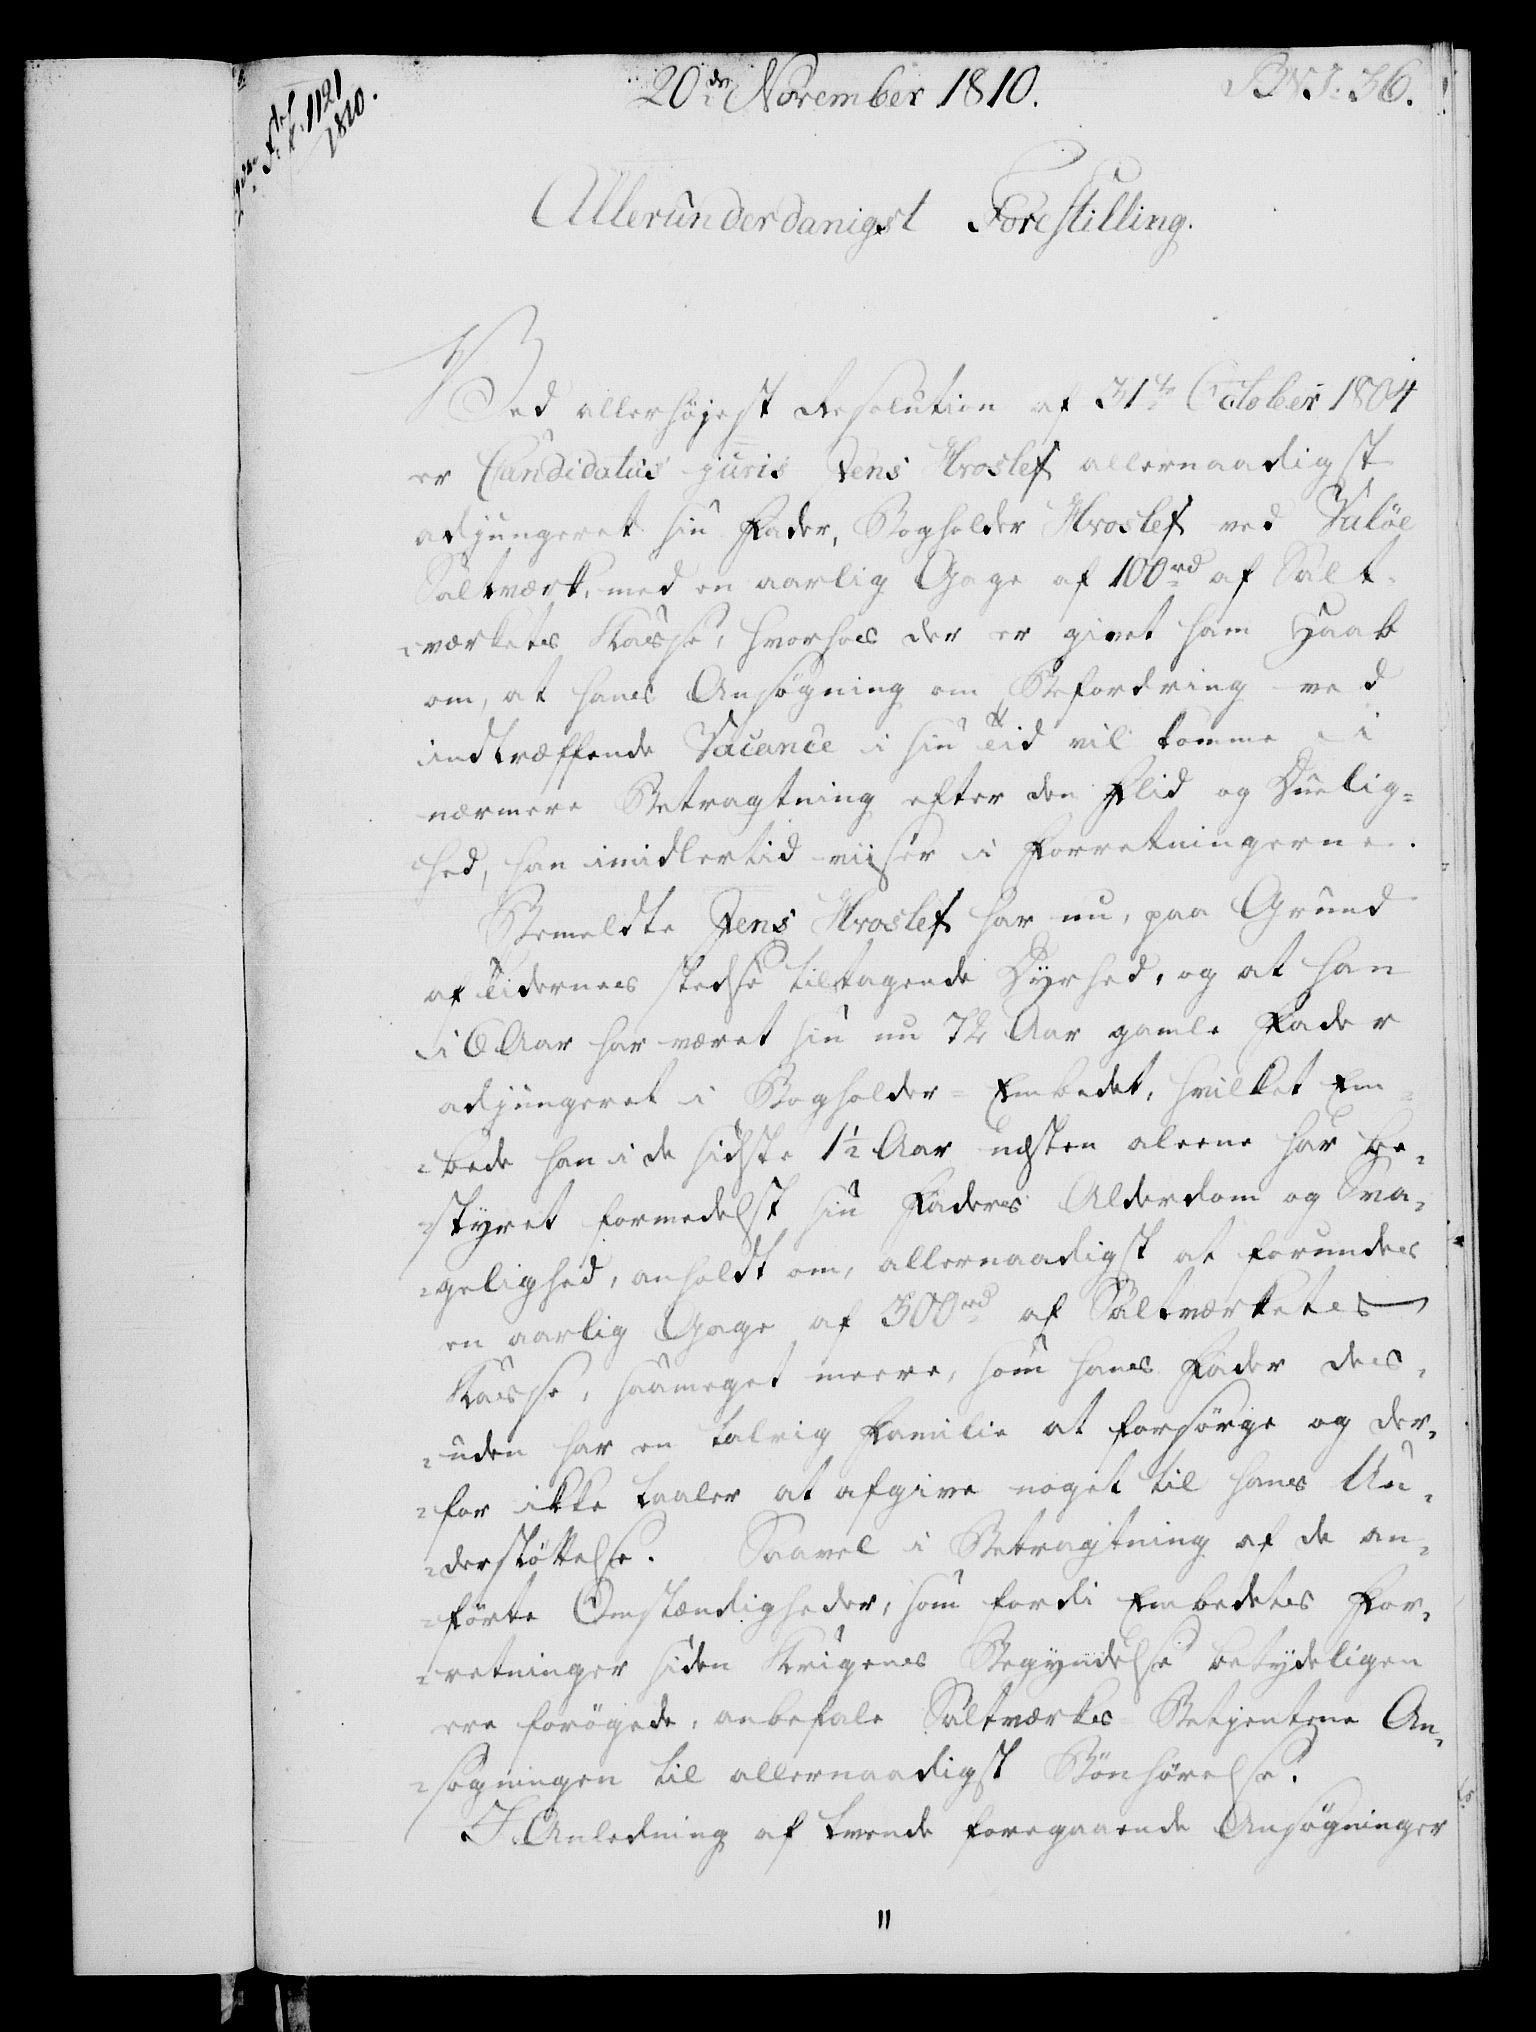 20de November 1810.
B N I: 36.
1121
1810.
Allerunderdanigst Forestilling.
Ved allerhøjest Resolution af 31te October 1804
er Candidatus juris Jens Hroslef allernaadigst
adjungeret sin Fader, Bogholder Hroslef ved Valøe
Saltværk, med en aarlig Gage af 100rd af Salt-
-værkets Kasse, hvorhos der er givet ham Haab
om, at hans Ansøgning om Befordring ved
indtræffende Vacance i sin Tid vil komme i
nærmere Betragtning efter den Flid og Duelig=
hed, han imidlertid viiser i Forretningerne.
Bemeldte Jens Hroslef har nu, paa Grund
af Tidernes stedse tiltagende Dyrhed, og at han
i 6 Aar har været sin nu 72 Aar gamle Fader
adjungeret i Bogholder=Embedet, hvilket Em=
=bede han i de sidste 1½ Aar næsten aleene har be-
=styret formedelst sin Faders Alderdom og Sva-
=gelighed, anholdt om, allernaadigst at forundes
en aarlig Gage af 300rd af Saltværkets
Kasse, saameget meere, som hans Fader des-
=uden har en talrig Familie at forsørge og der-
=for ikke taaler at afgive noget til hans Un-
=derstøttelse. Saavel i Betragtning af de an-
=førte Omstændigheder, som fordi Embedets For-
=retninger siden Krigens Begyndelse betydeligen
ere forøgede, anbefale Saltværks Betjentene An-
=søgningen til allernaadigst Bønhørelse.
I Anledning af tvende foregaaende Ansøgninger
11